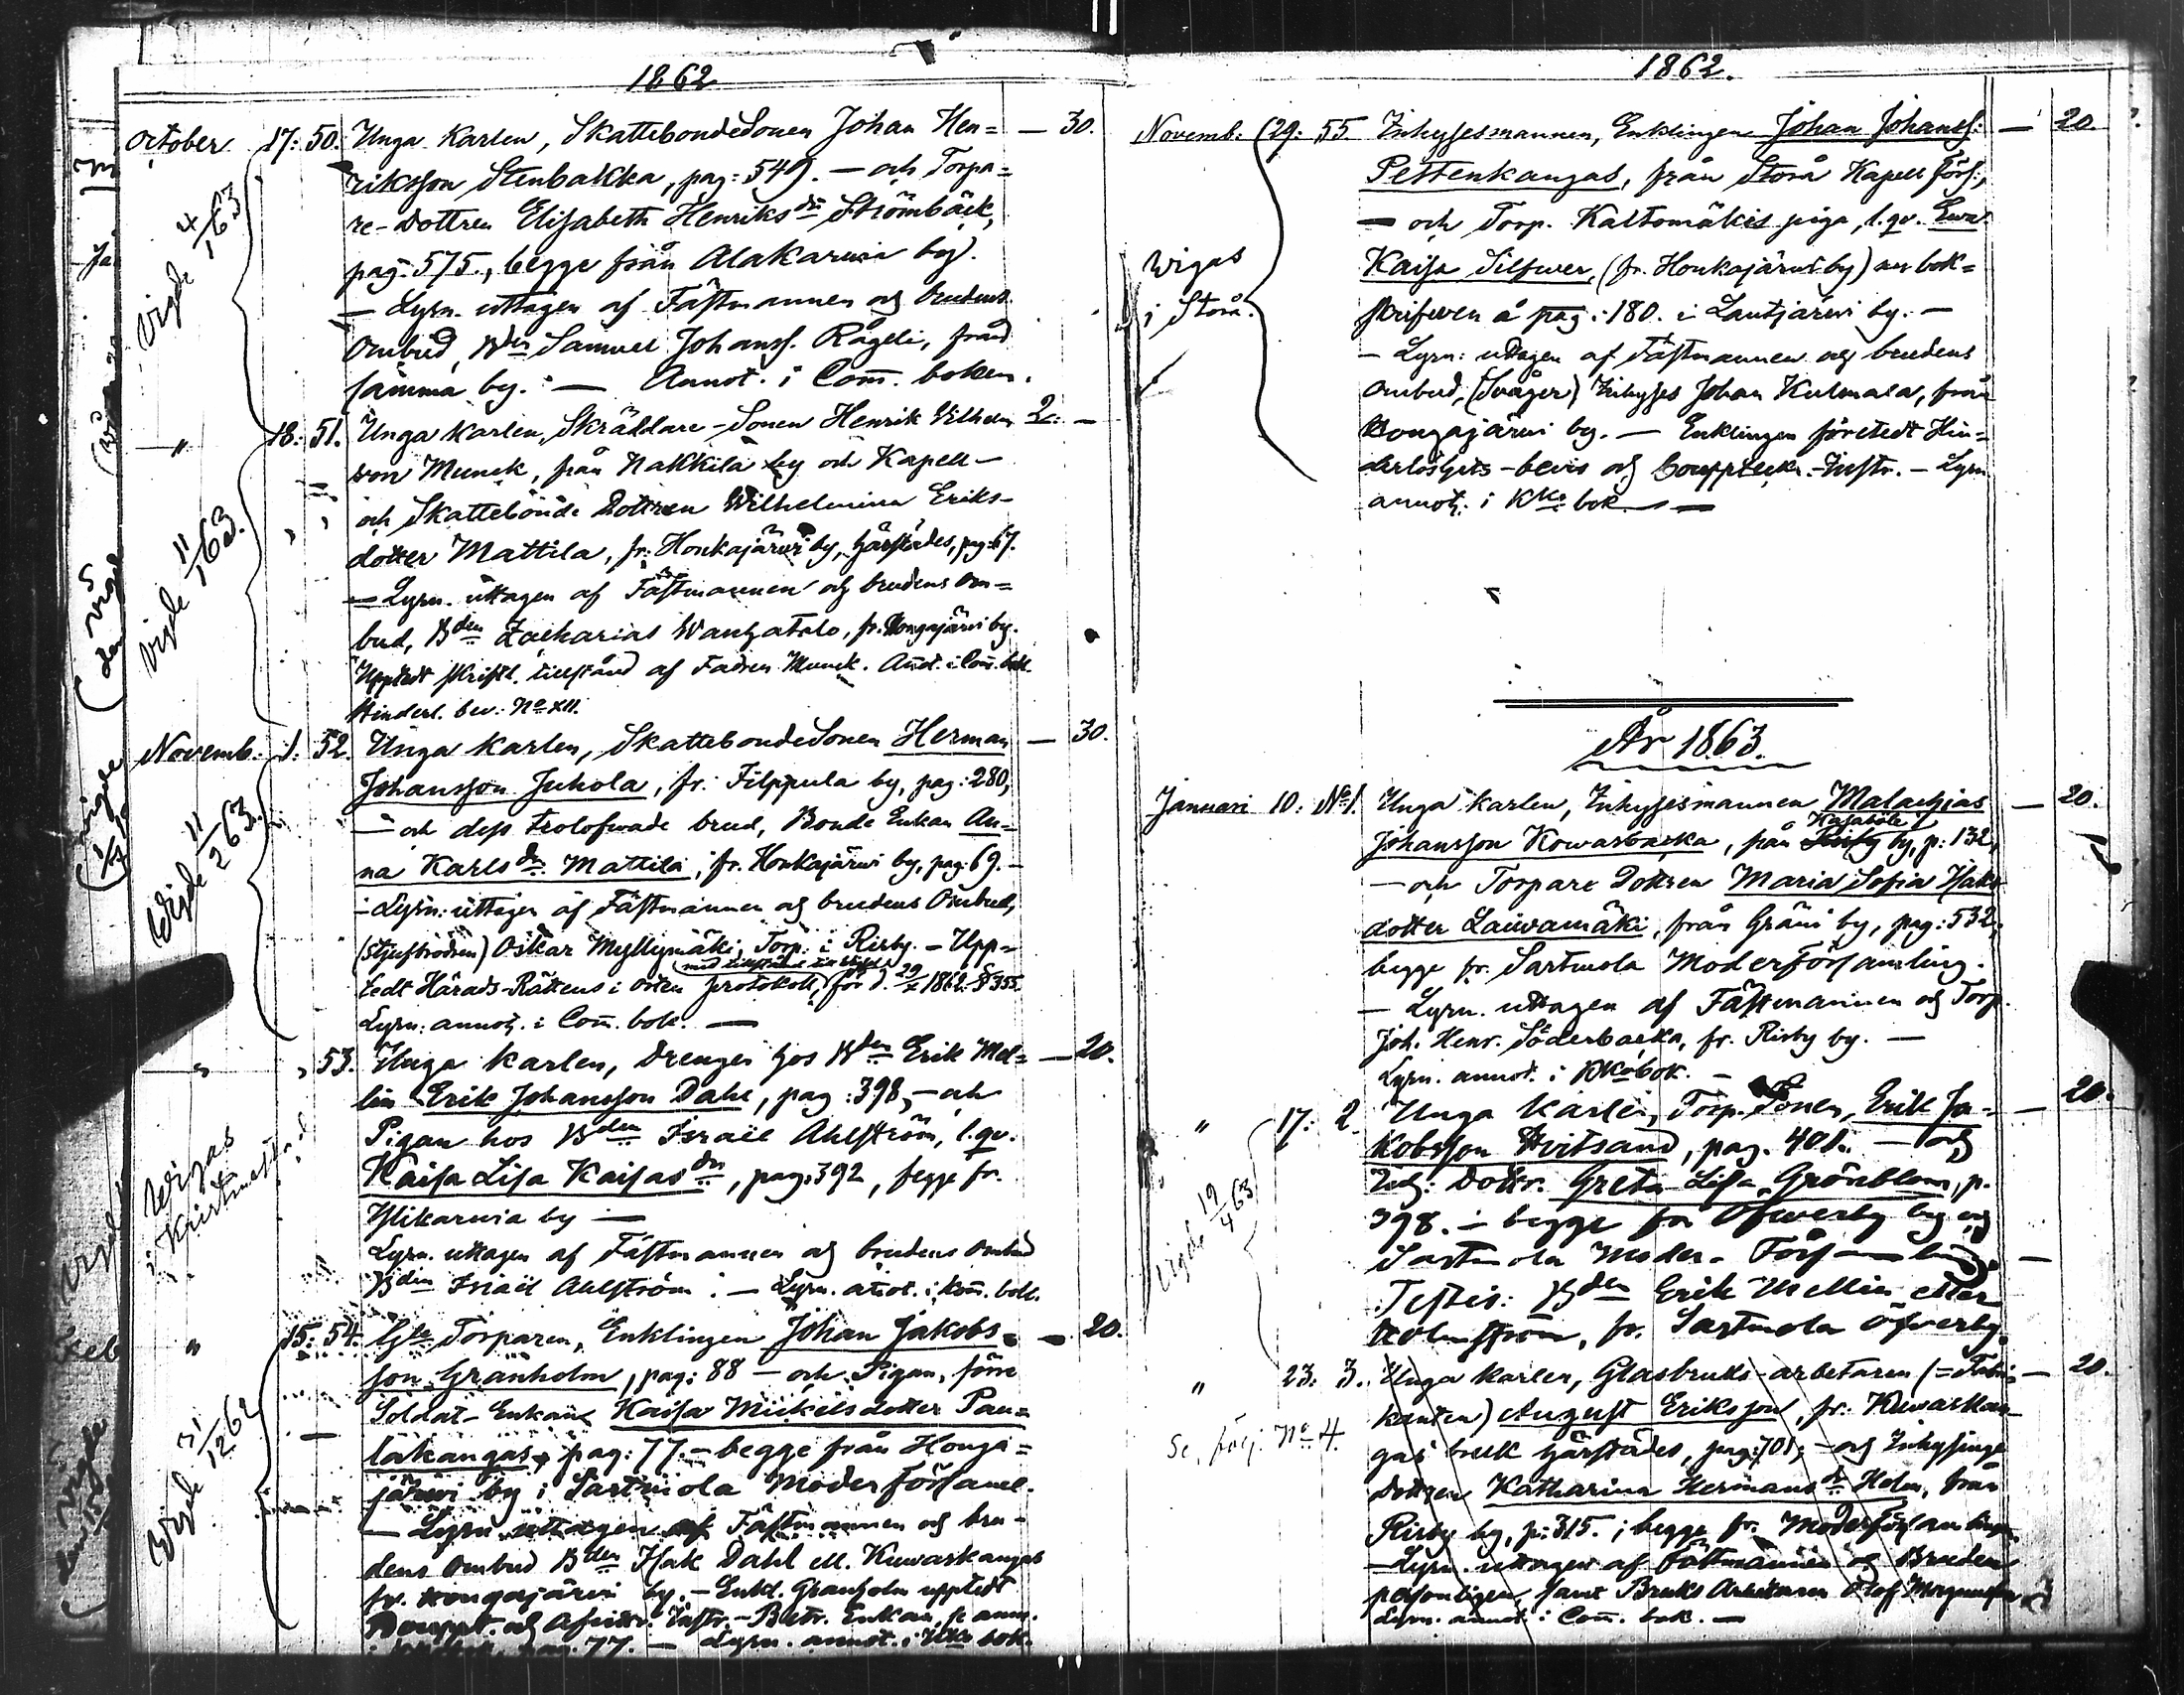 1862
October 17: 50. Unga Karlen, SkattebondeSonen Johan Hen= — 30.
riksson Stenbakka, pag: 549. — och Torpa=
re-dottren Elisabeth Henriksdr Strömbäck,
pag: 575., begge från Alakarwia by.
— Lysn. uttagen af Fästmannen och brudens
Ombud, Bden Samuel Johanss. Rågeli, från
samma by. — Annot. i Com. boken.
Vigde 4/1 63
" 18: 51. Unga Karlen, Skräddare-Sonen Henrik Vilhelm 2: —
son Munck, från Nakkila by och Kapell —
och Skattebonde Dottren Wilhelmina Eriks-
dotter Mattila, fr: Honkajärwi by, härstädes, pag: 67.
— Lysn. uttagen af Fästmannen och brudens Om=
bud, Bden Zacharias Wanhatalo, fr. Hongajärwi by.
Upptedt skriftl. tillstånd af Fadren Munck. Annot. i Com. bok.
Hinderl. bev: No XII.
Vigde 11/1 63.
Novemb. 1. 52. Unga Karlen, SkattebondeSonen Herman — 30.
Johansson Juhola, fr. Filppula by, pag: 280,
— och dess trolofwade brud, Bonde Enkan An=
na Karlsdr. Mattila, fr. Honkajärwi by, pag: 69. —
— Lysn: uttagen af Fästmannen och brudens Ombud,
(Stjufbrodren) Oskar Myllymäki, Torp. i Risby. — Upp=
(med tillstånd
tedt Härads-Rättens i orten protokoll, för d. 29/ 1862. § 355.
Lysn: annot. i Com. bok. —
Vigde 11/2 63.
" " 53. Unga Karlen, Drengen hos Bden Erik Mel= — 20.
lin Erik Johansson Dahl, pag: 398, — och
Pigan hos Bden Israël Ahlström, l.qv.
Kaisa Lisa Kaisasdr, pag: 392, begge fr.
Ylikarwia by —
Lysn. uttagen af Fästmannen och brudens Ombud
Bden Israël Ahlström. — Lysn. annot. i Kom. bok.
Wigas
i Kristinestad
" 15: 54. Torparen, Enklingen Johan Jakobs — 20.
son Granholm, pag: 88 — och Pigan, förre
Soldat-Enkan Kaisa Mickelsdotter Pau=
lakangas, pag: 77. — begge från Honga=
järwi by i Sastmola Moderförsaml.
— Lysn. uttagen af Fästmannen och bru-
dens Ombud Bden Isak Dahl ell. Kuwaskangas
fr. Hongajärwi by. — Enkl. Granholm upptedt
Bouppt. och Afvittr. Instr. —
pag. 77. — Lysn. annot. i bok.
Vigde 31/12 62
1862.
Novemb. 29: 55 Inhysesmannen, Enklingen Johan Johanss: — 20.
Pettenkangas, från Storå Kapell förs.,
— och Torp. Kaltomäkis piga, l.qv. Ewa
Kaisa Silfwer, (fr. Honkajärwi by) nu bok=
skrifwen å pag: 180. i Lautjärwi by. —
— Lysn: uttagen af Fästmannen och brudens
Ombud, (Swåger) Inhyses Johan Kulmala, från
Hongajärwi by. — Enklingen företedt Hin=
derlöshets-bevis och Bouppteckn.-Instr. — Lysn.
annot. i Kko bok —
Wigas
i Storå.
År 1863.
Januari 10: No 1. Unga Karlen, Inhysesmannen Malachias — 20.
Kasaböle
Johansson Kowasbacka, från by, p: 132,
— och Torpare Dottren Maria Sofia Isaks
dotter Lauwamäki, från Gräni by, pag: 532,
begge fr. Sastmola Moderförsamling.
— Lysn. uttagen af Fästmannen och Torp.
Joh. Henr. Söderbacka, fr. Risby by. —
Lysn. annot. i Kkobok. —
" 17: 2. Unga Karlen, Torp. Sonen, Erik Ja- — 20.
kobsson Hvitsand, pag. 408. — och
Inh: Dottr. Greta Lisa Grönblom, p.
398. — begge fr. Öfwerby by och
Sastmola Moder-Församling. —
Testis: Bden Erik Mellin eller
Holmström, fr. Sastmola Öfwerby.
Vigde 19/4 63
" 23: 3. Unga Karlen, Glasbruks-arbetaren (= Fabri — 20.
kanten) August Eriksson, fr. Kuwaskan
gas bruk härstädes, pag: 701; — och Inhysinge
Dottren Katharina Hermansdr Holm, från
Risby by, p: 315. ; begge fr. Moderförsamlingen
— Lysn. uttagen af Fästmannen och Bruden
personligen, samt Bruks Arbetaren Olof
Lysn. annot. i Com. bok. —
Se följ. No 4.